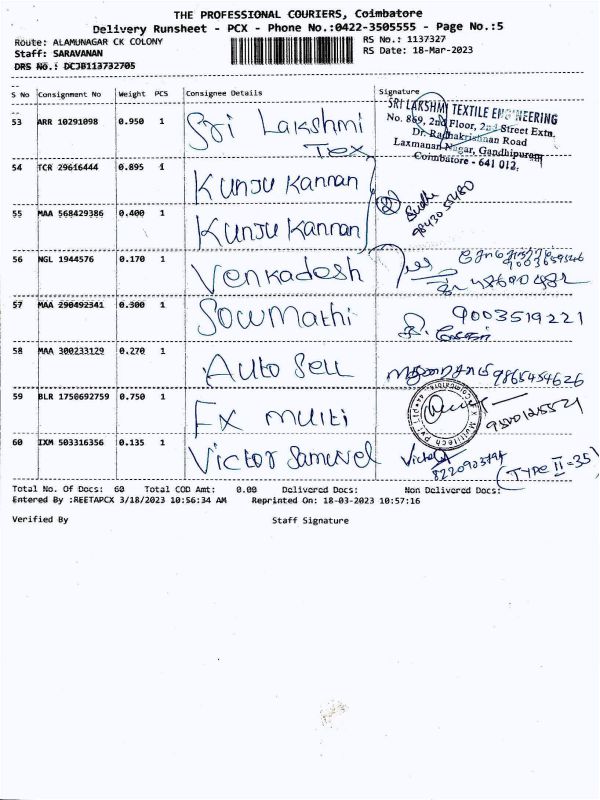 THE PROFESSIONAL COURIERS, Coimbatore
Delivery Runsheet - PCX - Phone No.:0422-3505555 - Page No.:5
Route: ALAMUNAGAR CK COLONY RS No.: 1137327
Staff: SARAVANAN RS Date: 18-Mar-2023
DRS No.: DCJB113732705
S No Consignment No Weight PCS Consignee Details Signature
SRI LAKSHMI TEXTILE ENGINEERING
No. 869, 2nd Floor, 2nd Street Extn.
Dr. Radhakrishnan Road
Laxmanan Nagar, Gandhipuram
Coimbatore - 641 012.
53 ARR 10291098 0.950 1 Sri Lakshmi
Tex
54 TCR 29616444 0.895 1 Kunju Kannan
55 MAA 568429386 0.400 1 Kunju Kannan
56 NGL 1944576 0.170 1 Venkadesh
57 MAA 290492341 0.300 1 Sowmathi 9003519221
58 MAA 300233129 0.270 1 Auto Sell 9865454626
59 BLR 1750692759 0.750 1 Fx multi
60 IXM 503316356 0.135 1 Victor Samuvel Victor
(TYPE II-35)
Total No. Of Docs: 60 Total COD Amt: 0.00 Delivered Docs: Non Delivered Docs:
Entered By :REETAPCX 3/18/2023 10:56:34 AM Reprinted On: 18-03-2023 10:57:16
Verified By Staff Signature